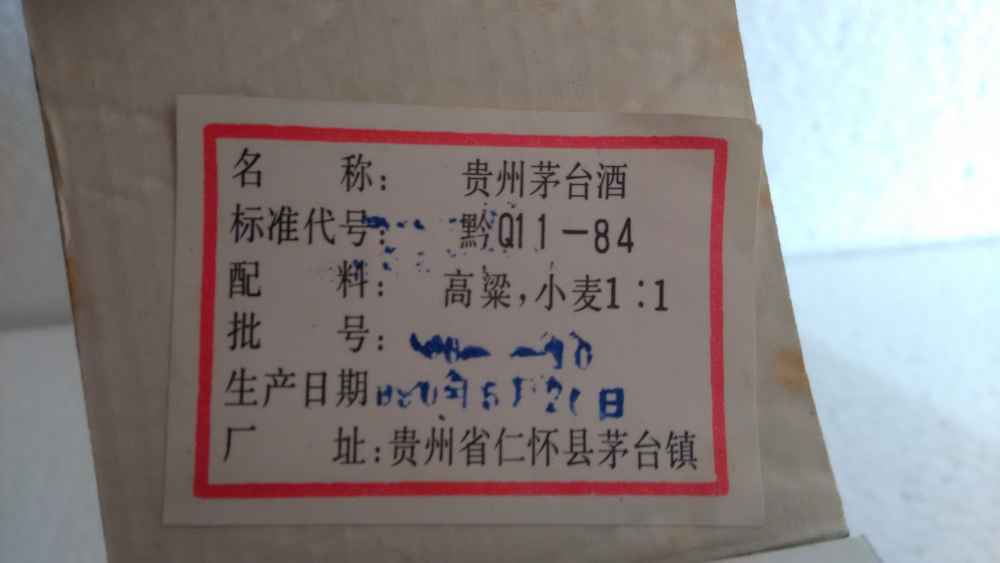 名 称: 贵州茅台酒
标准代号: 黔Q11-84
配 料: 高粱,小麦1:1
批 号:
生产日期 年5月21日
厂 址:贵州省仁怀县茅台镇